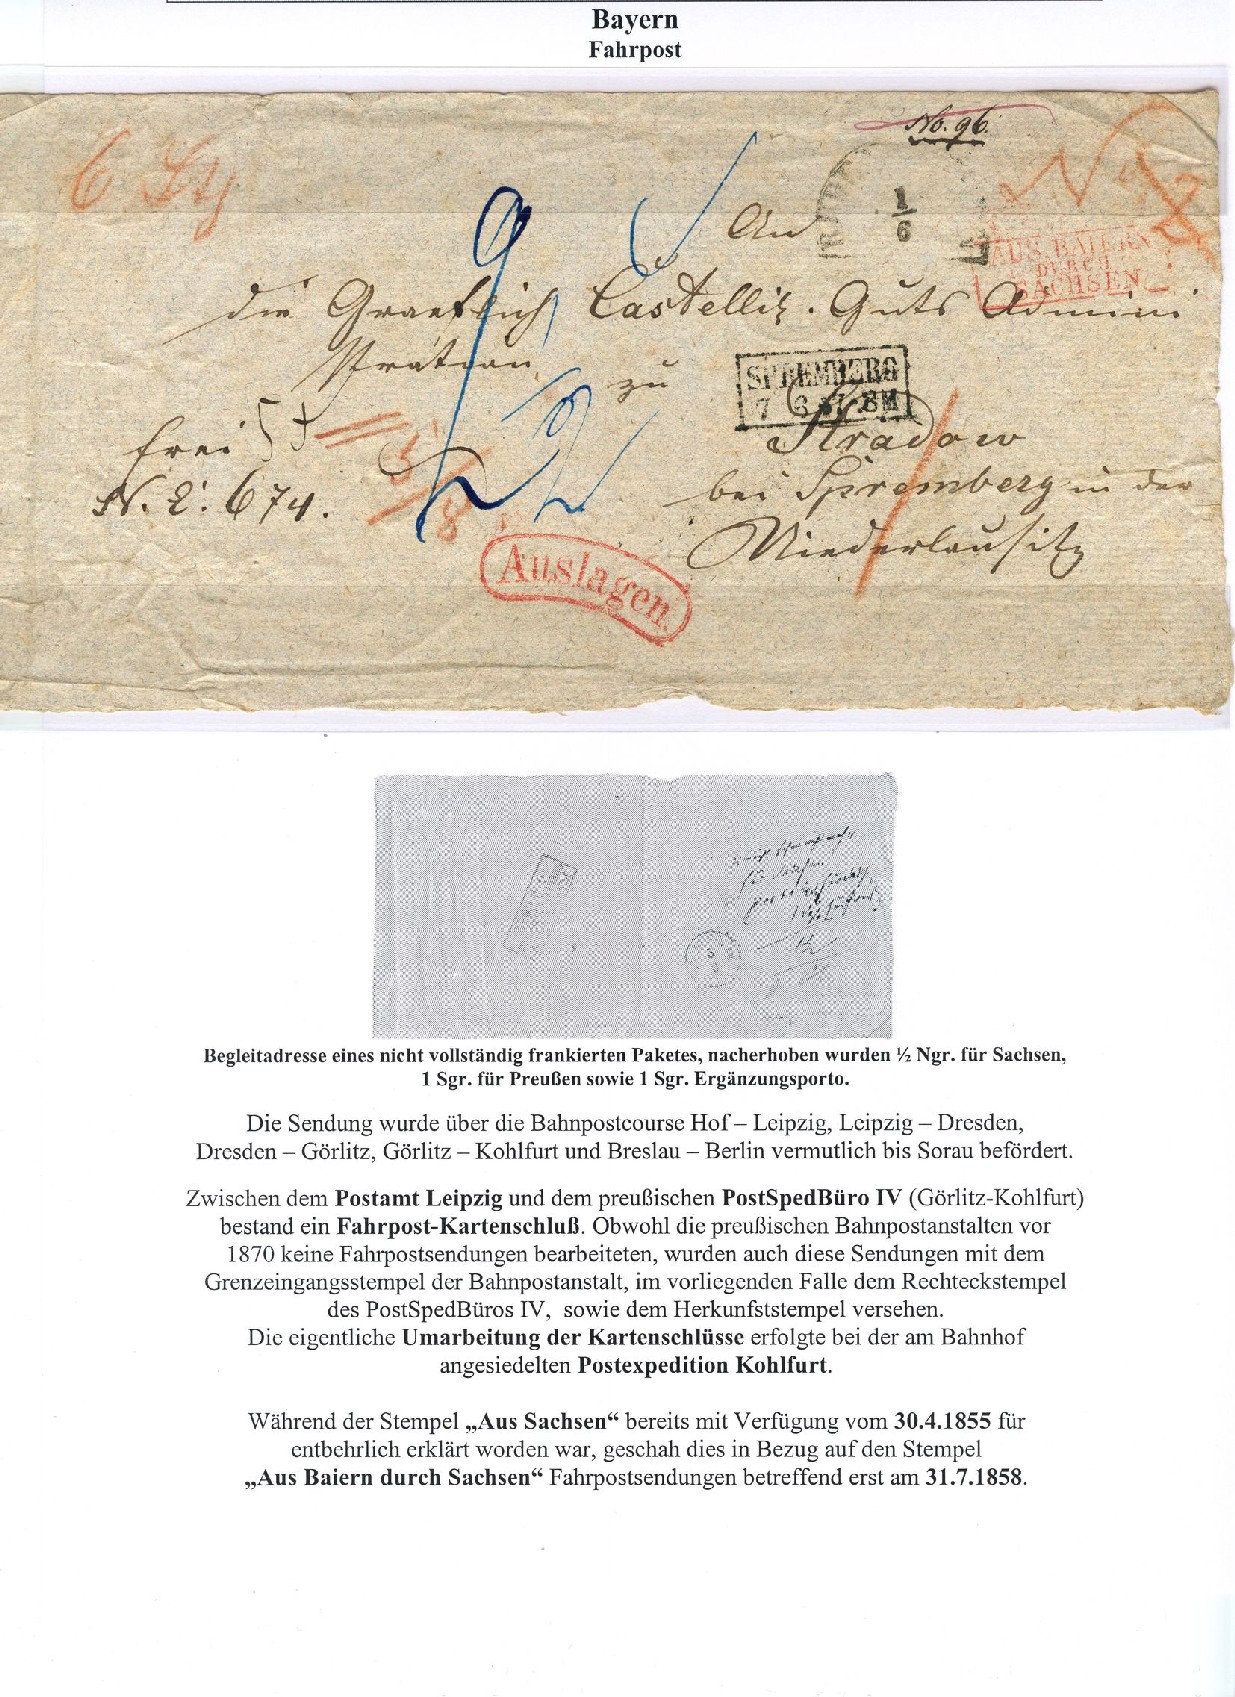 Bayern
Fahrpost
No. 96.
6
9
An
1/6
AUS BAIERN
DURCH
SACHSEN
die Graeflich Castellis. Guts Admini
stration
zu
SPREMBERG
7 6
Stradow
frei
bei Spremberg in der
N. E. 674.
Niederlausitz
Auslagen.
Begleitadresse eines nicht vollständig frankierten Paketes, nacherhoben wurden ½ Ngr. für Sachsen,
1 Sgr. für Preußen sowie 1 Sgr. Ergänzungsporto.
Die Sendung wurde über die Bahnpostcourse Hof – Leipzig, Leipzig – Dresden,
Dresden – Görlitz, Görlitz – Kohlfurt und Breslau – Berlin vermutlich bis Sorau befördert.
Zwischen dem Postamt Leipzig und dem preußischen PostSpedBüro IV (Görlitz-Kohlfurt)
bestand ein Fahrpost-Kartenschluß. Obwohl die preußischen Bahnpostanstalten vor
1870 keine Fahrpostsendungen bearbeiteten, wurden auch diese Sendungen mit dem
Grenzeingangsstempel der Bahnpostanstalt, im vorliegenden Falle dem Rechteckstempel
des PostSpedBüros IV, sowie dem Herkunfststempel versehen.
Die eigentliche Umarbeitung der Kartenschlüsse erfolgte bei der am Bahnhof
angesiedelten Postexpedition Kohlfurt.
Während der Stempel „Aus Sachsen“ bereits mit Verfügung vom 30.4.1855 für
entbehrlich erklärt worden war, geschah dies in Bezug auf den Stempel
„Aus Baiern durch Sachsen“ Fahrpostsendungen betreffend erst am 31.7.1858.